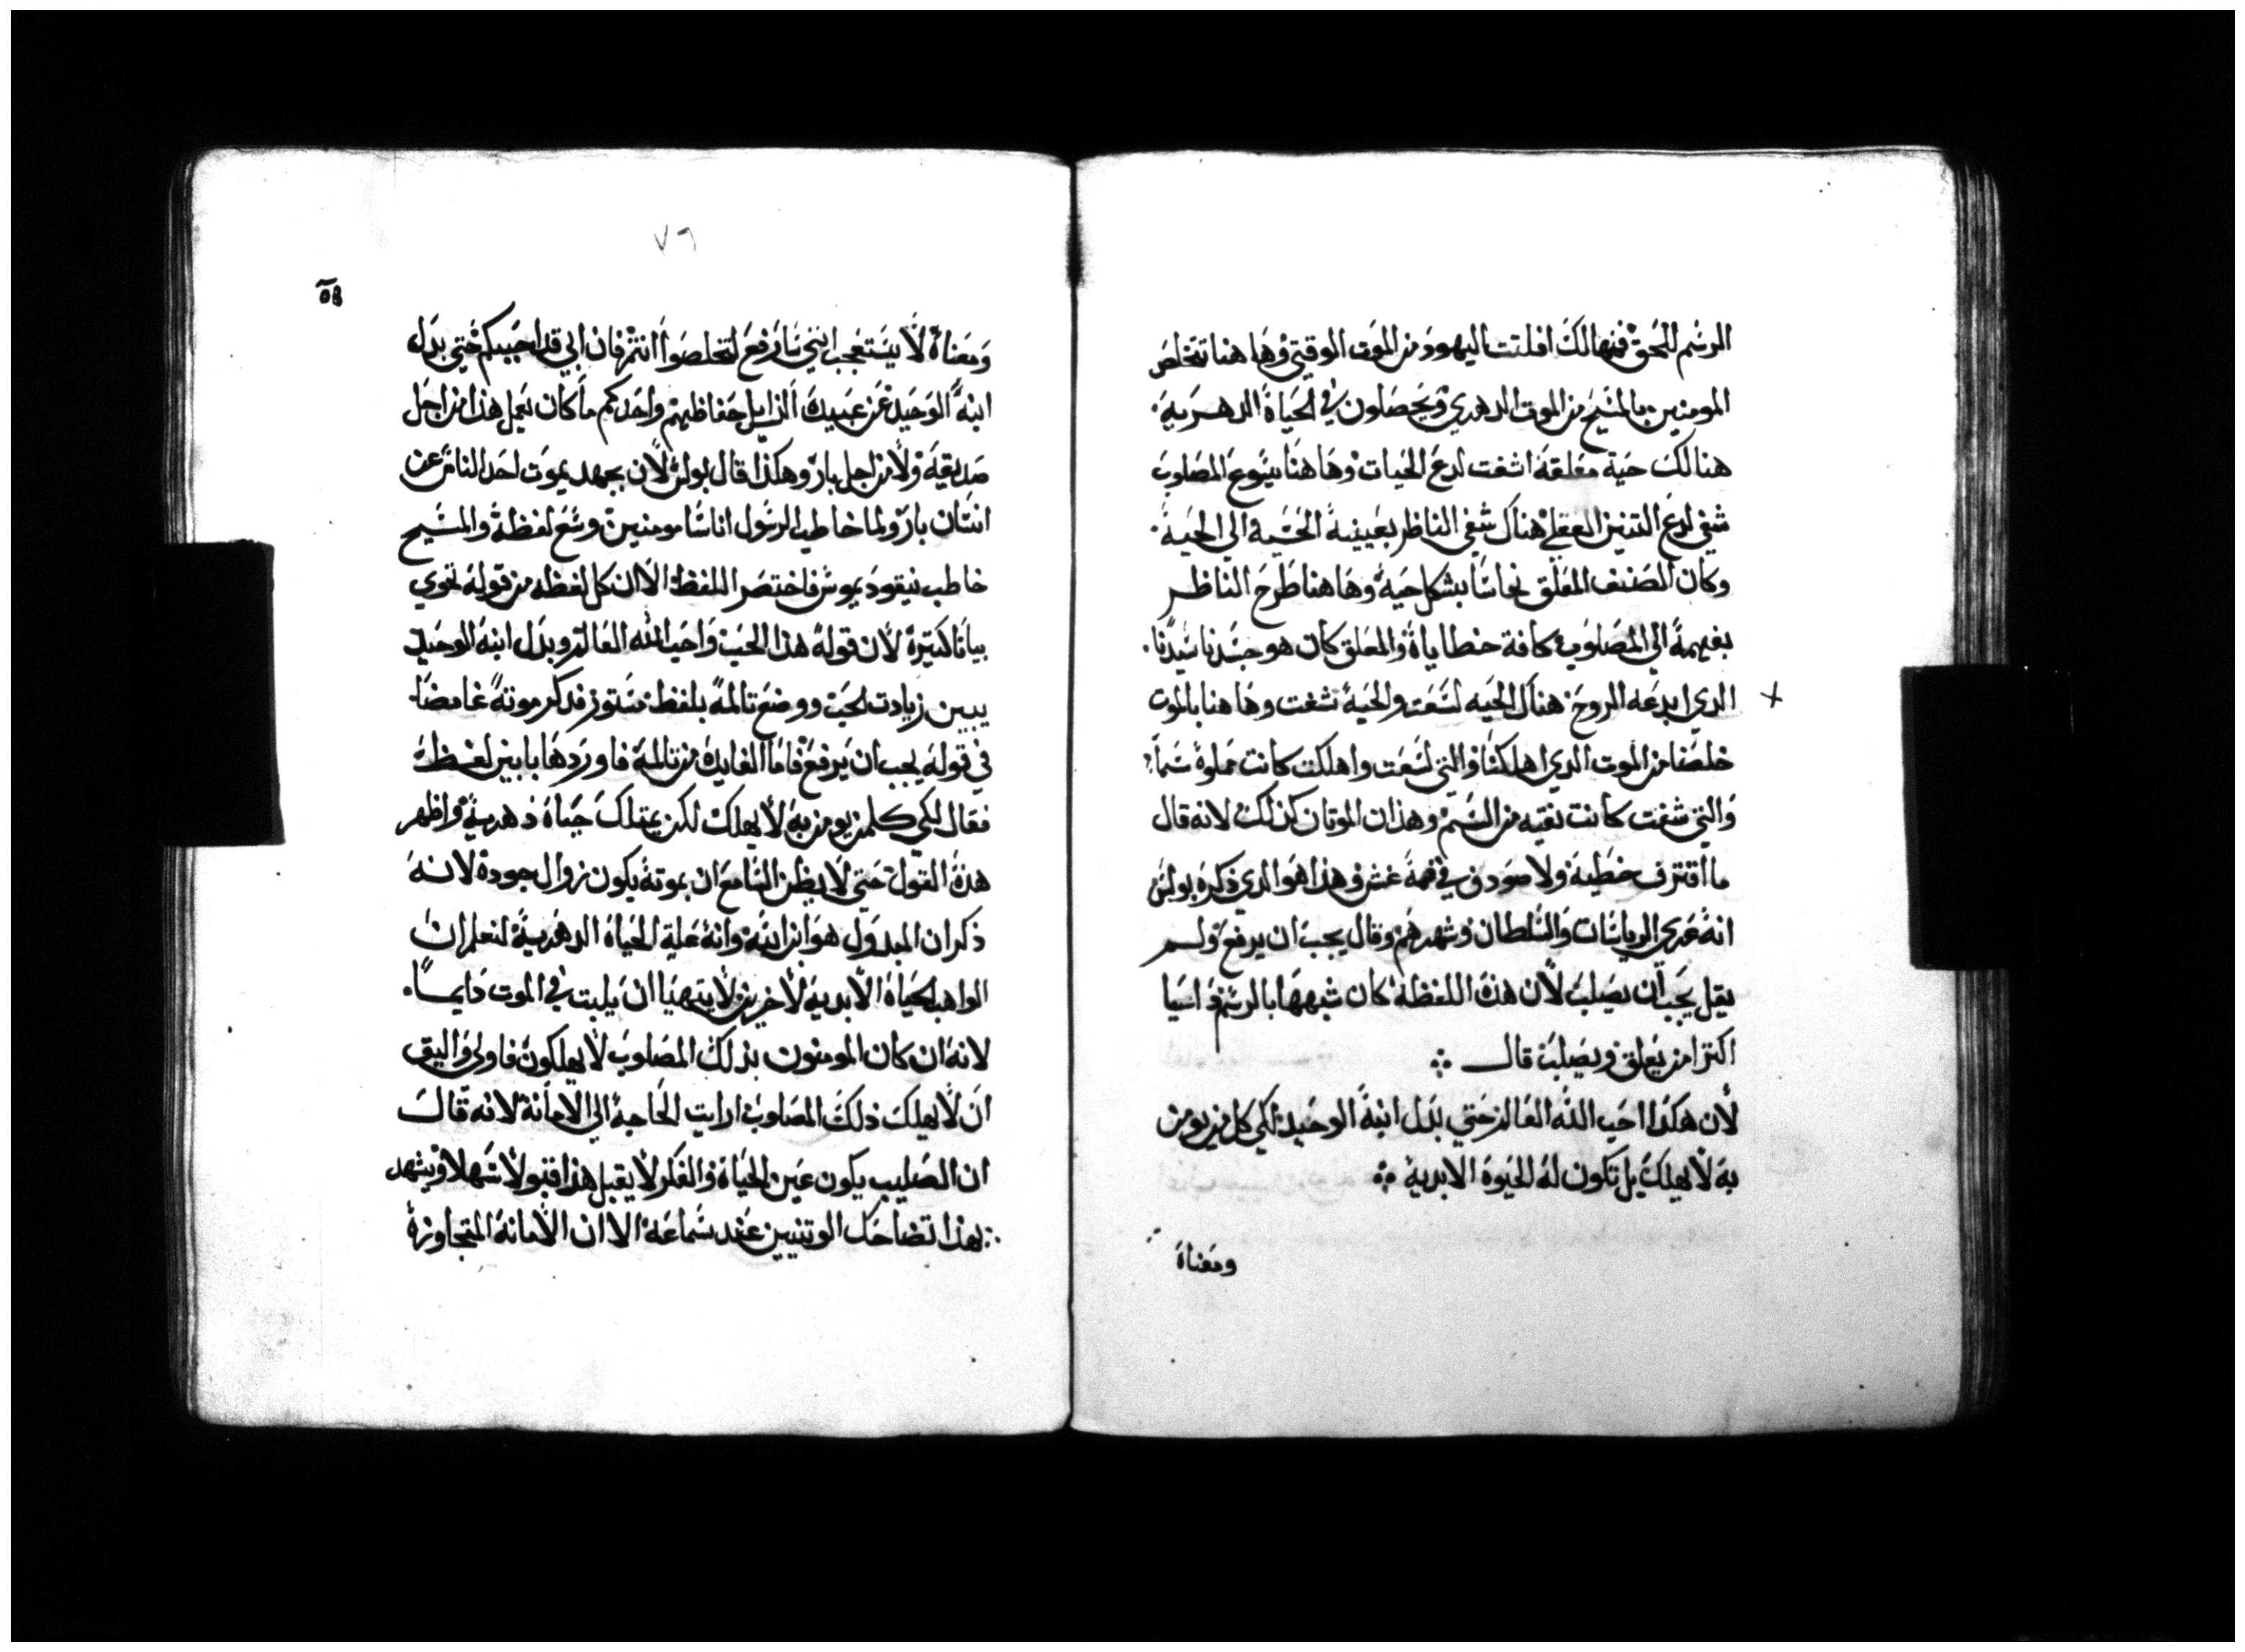 الرسم للحق فهنالك افلتت اليهود من الموت الوقتي وهاهنا تخلص
المومنين بالمسيح من الموت الدهري ويحصلون في الحياة الدهرية
هنالك حية معلقة اشفت لدغ الحيات وهاهنا يسوع المصلوب
شفي لدغ التنين العقلي هناك شفي الناظر بعينية الحسية الي الحية
وكان الصنف المعلق نحاسا بشكل حية وهاهنا طرح الناظر
بفهمة الي المصلوب كافة خطاياة والمعلق كان هو جسد ربنا سيدنا
الدي ابدعه الروح هناك الحيه لسعت والحية شفت وهاهنا بالموت
خلصنا من الموت الدي اهلكنا والتي لسعت واهلكت كانت مملوة سما
والتي شفت كانت نقيه من السم وهذان الموتان كذلك لانه قال
ما اقترف خطية ولا صودف في فمة غش وهذا هو الدي ذكرة بولس
انة عري الرياسات والسلطان وشهرهم وقال يجب ان يرفع ولم
يقل يجب ان يصلب لان هذة اللفظة كان شبهها بالرسم
اكثر من يعلق ويصلب قال
لان هكذا احب الله العالم حتي بدل ابنة الوحيد لكي كل من يومن
بة لا يهلك بل تكون لة الحيوة الابدية
ومعناة
٧٦
ومعناة لا يستعجب انني سارفع لتخلصوا انتم فان ابي قد احبكم حتي بدل
ابنة الوحيد عن عبيدة واحدكم ما كان يعمل هذا من اجل
صديقة ولا من اجل بار وهكذا قال بولس لان بجهد يموت احد الناس عن
انسان بار ولما خاطب الرسول اناسا مومنين وسع لفظة والمسيح
خاطب نيقوديموس فاختصر اللفظ الا ان كل لفظه من قولة تحوي
بيانا كتيرة لان قولة هذا الحب واحب الله العالم وبدل ابنة الوحيد
يبين زيادت الحب ووضع تالمة بلفظ مستور فدكر موتة غامضا
في قولة يجب ان يرفع فاما الفايدة من تالمة فاوردها بابين لفظة
فقال لكي كلمن يومن بة لا يهلك لكن يمتلك حياة دهرية واظهر
هذة القول حتي لا يظن السامع ان بموتة يكون زوال جودة لانة
ذكر ان المبدول هو ابن ابية وانة علية الحياة الدهرية لنعلم ان
الواهب الحياة الابدية لاخرين لا يتهيا ان يلبت في الموت دايما
لانة ان كان المومنون بذلك المصلوب لا يهلكون فاولي واليق
ان لا يهلك ذلك المصلوب ارايت الحاجة الي الامانة لانه قال
ان الصليب يكون عين الحياة والفكر لا يقبل هذا قبولا سهلا ويشهد
بهذا تضاحك الوتنيين عند سماعة الا ان الامانة المتجاوزة